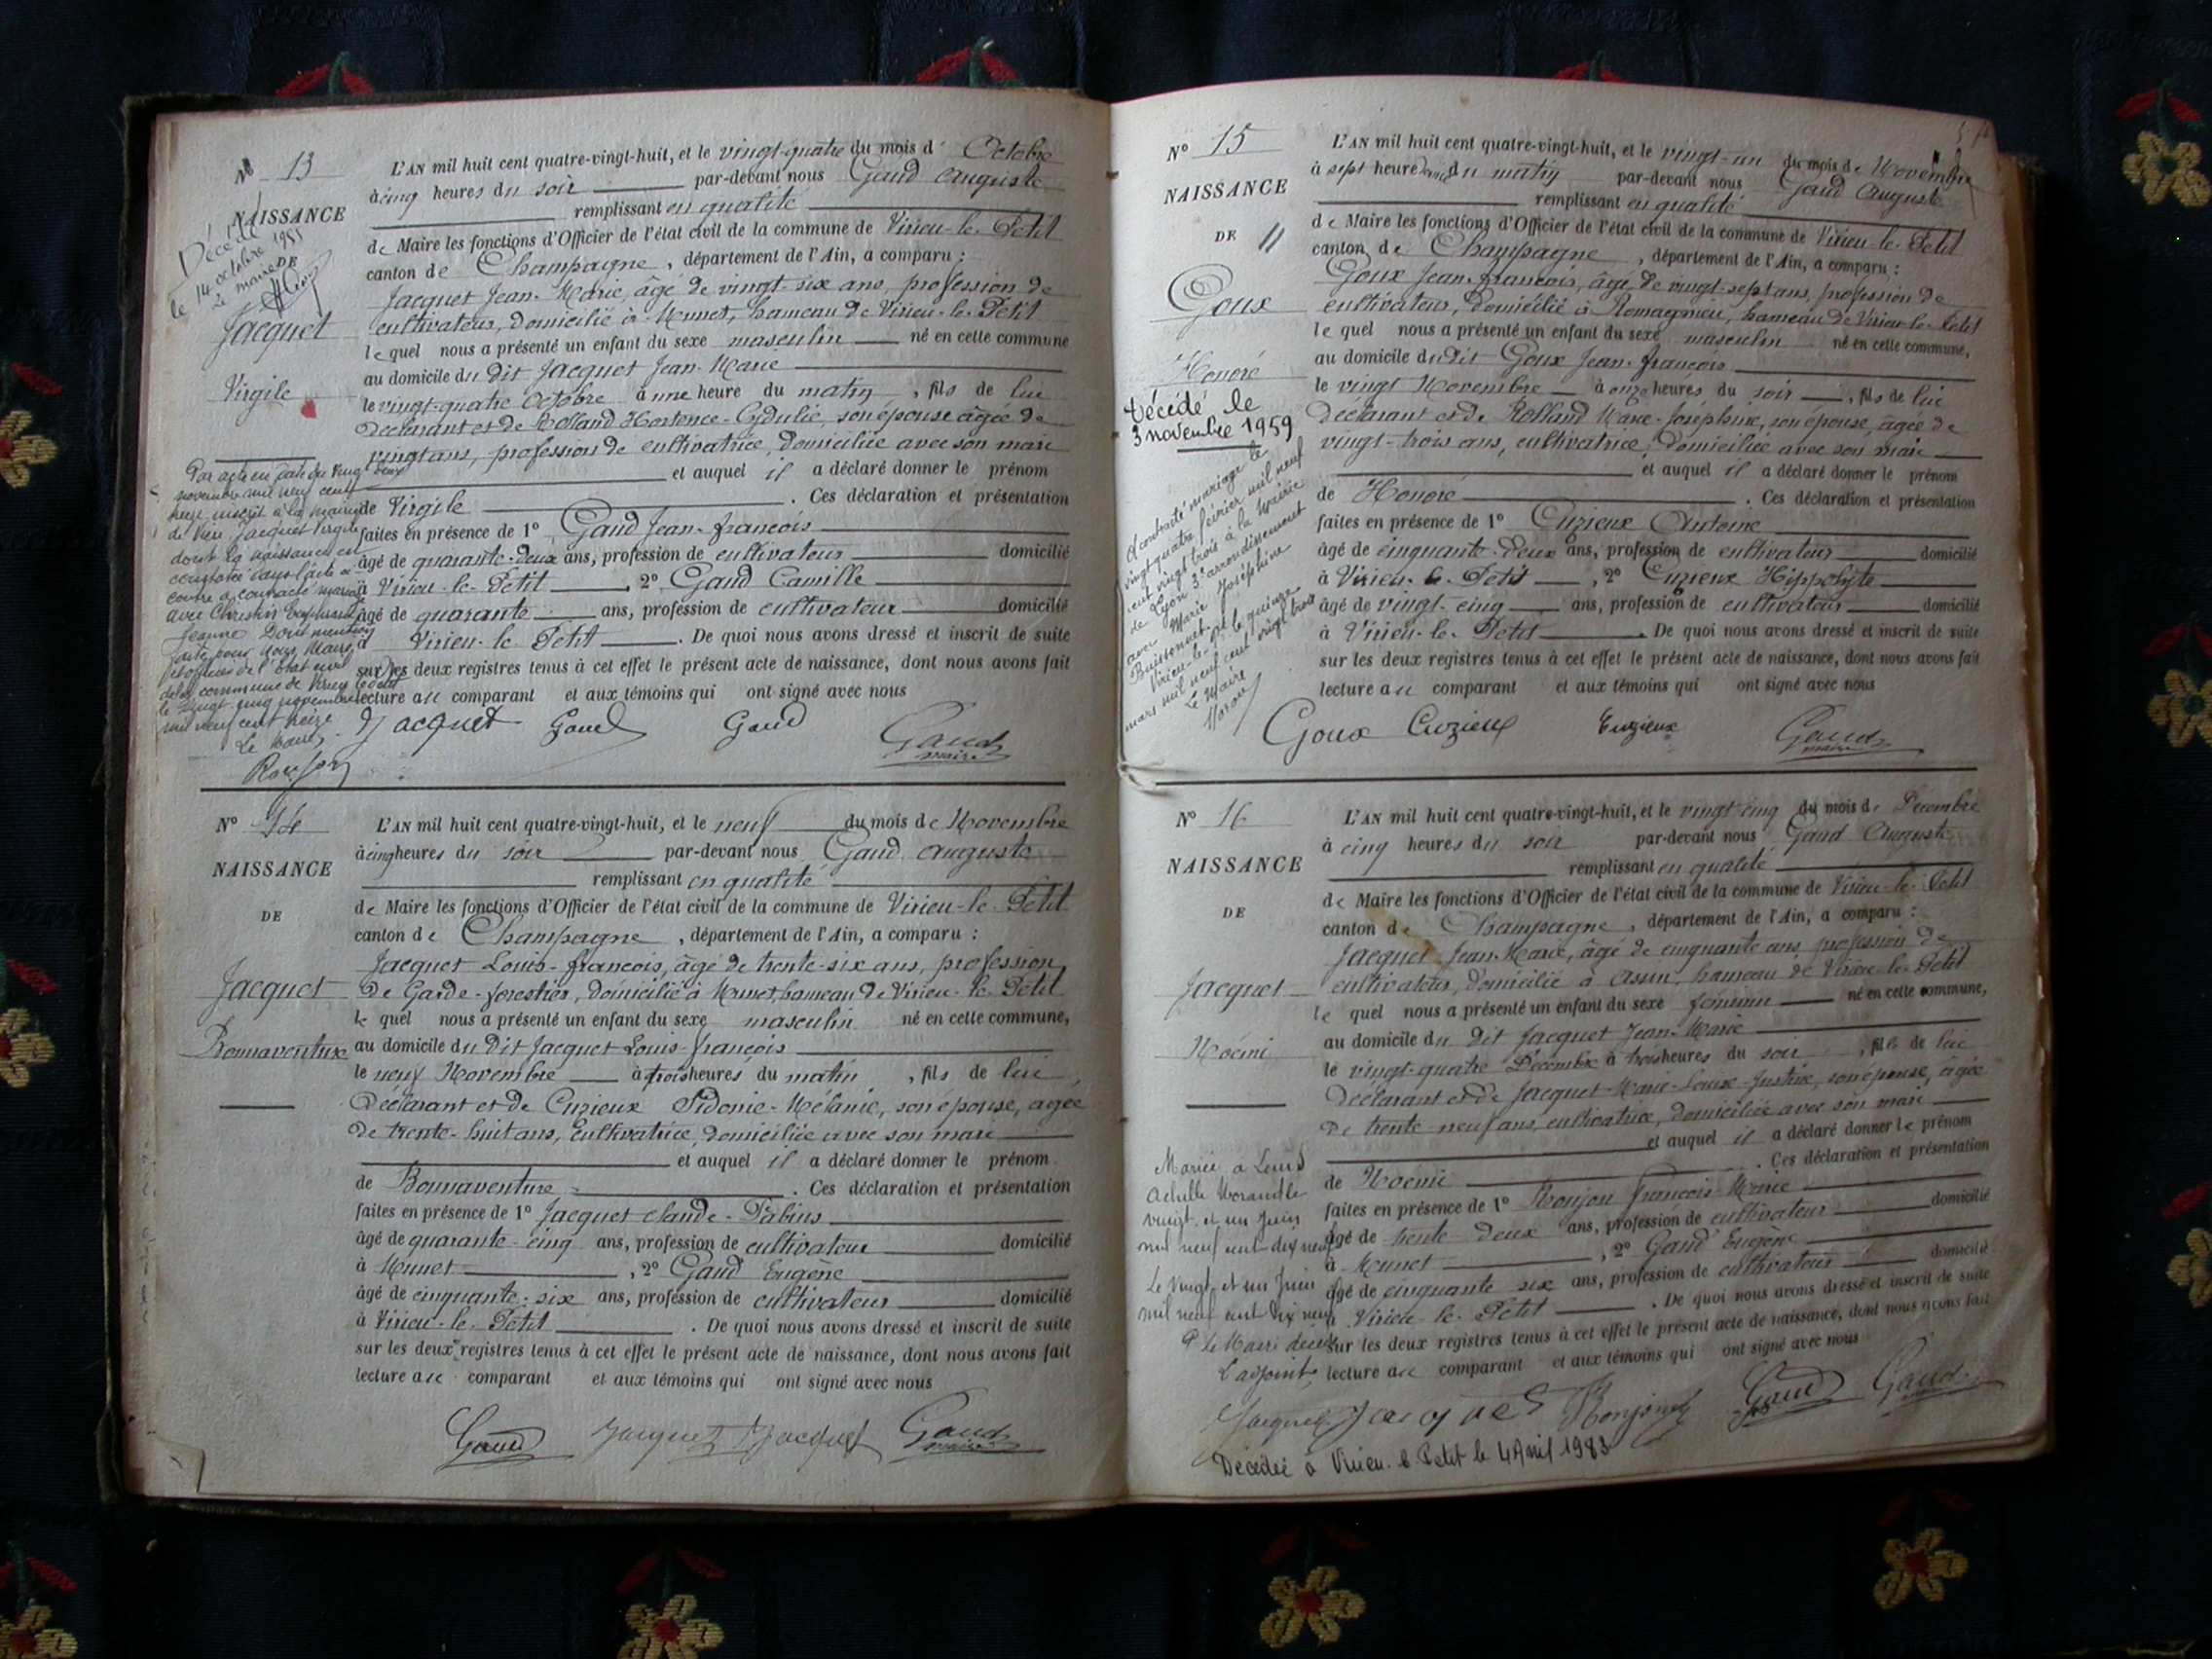 Nº 13
NAISSANCE
DE
Jacquet
Virgile
Décédé
le 14 octobre 1955
L'AN mil huit cent quatre-vingt-huit, et le vingt-quatre du mois d' Octobre
à cinq heures du soir par-devant nous Gaud Auguste
remplissant en qualité
de Maire les fonctions d'Officier de l'état civil de la commune de Virieu-le-Petit
canton de Champagne, département de l'Ain, a comparu :
Jacquet Jean-Marie, âgé de vingt-six ans, profession de
cultivateur, domicilié à Munet, hameau de Virieu-le-Petit
lequel nous a présenté un enfant du sexe masculin né en cette commune
au domicile du dit Jacquet Jean-Marie
le vingt-quatre Octobre à une heure du matin, fils de lui
déclarant et de Rolland Hortence-Cydulie, son épouse âgée de
vingt ans, profession de cultivatrice, domiciliée avec son mari
et auquel il a déclaré donner le prénom
de Virgile. Ces déclaration et présentation
faites en présence de 1º Gaud Jean-françois
âgé de quarante-deux ans, profession de cultivateur domicilié
à Virieu-le-Petit, 2º Gaud Camille
âgé de quarante ans, profession de cultivateur domicilié
à Virieu-le-Petit. De quoi nous avons dressé et inscrit de suite
sur les deux registres tenus à cet effet le présent acte de naissance, dont nous avons fait
lecture au comparant et aux témoins qui ont signé avec nous
Jacquet Gaud Gaud Gaud
maire
Par acte en date du vingt deux
novembre mil neuf cent
treize inscrit à la mairie
de Vieu Jacquet Virgile
dont la naissance est
constatée dans l'acte ci
contre a contracté mariage
avec Christin
Jeanne Dont mention
faite par nous Maire
officier de l'état civil
de la commune de Virieu le Petit
le vingt-cinq novembre
mil neuf cent treize
Le Maire
Nº 14
NAISSANCE
DE
Jacquet
Bonnaventure
L'AN mil huit cent quatre-vingt-huit, et le neuf du mois de Novembre
à cinq heures du soir par-devant nous Gaud Auguste
remplissant en qualité
de Maire les fonctions d'Officier de l'état civil de la commune de Virieu-le-Petit
canton de Champagne, département de l'Ain, a comparu :
Jacquet Louis-françois, âgé de trente-six ans, profession
de Garde-forestier, domicilié à Munet, hameau de Virieu-le-Petit
lequel nous a présenté un enfant du sexe masculin né en cette commune,
au domicile du dit Jacquet Louis-françois
le neuf Novembre à trois heures du matin, fils de lui,
déclarant et de Cuzieux Sidonie-Mélanie, son épouse, âgée
de trente-huit ans, cultivatrice, domiciliée avec son mari
et auquel il a déclaré donner le prénom
de Bonnaventure. Ces déclaration et présentation
faites en présence de 1º Jacquet Claude-Fabius
âgé de quarante-cinq ans, profession de cultivateur domicilié
à Munet, 2º Gaud Eugène
âgé de cinquante-six ans, profession de cultivateur domicilié
à Virieu-le-Petit. De quoi nous avons dressé et inscrit de suite
sur les deux registres tenus à cet effet le présent acte de naissance, dont nous avons fait
lecture au comparant et aux témoins qui ont signé avec nous
Gaud Jacquet Jacquet Gaud
maire
Nº 15
NAISSANCE
DE
Goux
Honoré
Décédé le
3 novembre 1959
L'AN mil huit cent quatre-vingt-huit, et le vingt-un du mois de Novembre
à sept heures du matin par-devant nous Gaud Auguste
remplissant en qualité
de Maire les fonctions d'Officier de l'état civil de la commune de Virieu-le-Petit
canton de Champagne, département de l'Ain, a comparu :
Goux Jean-françois, âgé de vingt-sept ans, profession de
cultivateur, domicilié à Romagnieu, hameau de Virieu-le-Petit
lequel nous a présenté un enfant du sexe masculin né en cette commune,
au domicile du dit Goux Jean-françois
le vingt Novembre à onze heures du soir, fils de lui
déclarant et de Rolland Marie-Joséphine, son épouse, âgée de
vingt-trois ans, cultivatrice, domiciliée avec son mari
et auquel il a déclaré donner le prénom
de Honoré. Ces déclaration et présentation
faites en présence de 1º Cuzieux Antoine
âgé de cinquante-deux ans, profession de cultivateur domicilié
à Virieu-le-Petit, 2º Cuzieux Hippolyte
âgé de vingt-cinq ans, profession de cultivateur domicilié
à Virieu-le-Petit. De quoi nous avons dressé et inscrit de suite
sur les deux registres tenus à cet effet le présent acte de naissance, dont nous avons fait
lecture au comparant et aux témoins qui ont signé avec nous
Goux Cuzieux Cuzieux Gaud
maire
A contracté mariage le
vingt quatre février mil neuf
cent vingt trois à la Mairie
de Lyon 3e arrondissement
avec Marie Joséphine
Buissonnet
Virieu-le-Pt le quinze
mars mil neuf cent vingt trois
Le Maire
Nº 16
NAISSANCE
DE
Jacquet
Noémi
L'AN mil huit cent quatre-vingt-huit, et le vingt-cinq du mois de Décembre
à cinq heures du soir par-devant nous Gaud Auguste
remplissant en qualité
de Maire les fonctions d'Officier de l'état civil de la commune de Virieu-le-Petit
canton de Champagne, département de l'Ain, a comparu :
Jacquet Jean-Marie, âgé de cinquante ans, profession de
cultivateur, domicilié à Assin, hameau de Virieu-le-Petit
lequel nous a présenté un enfant du sexe féminin né en cette commune,
au domicile du dit Jacquet Jean-Marie
le vingt-quatre Décembre à trois heures du soir, fille de lui
déclarant et de Jacquet Marie-Louise-Justine, son épouse, âgée
de trente neuf ans, cultivatrice, domiciliée avec son mari
et auquel il a déclaré donner le prénom
de Noémi. Ces déclaration et présentation
faites en présence de 1º Bonjou François-Marie
âgé de trente deux ans, profession de cultivateur domicilié
à Munet, 2º Gaud Eugène
âgé de cinquante six ans, profession de cultivateur domicilié
à Virieu-le-Petit. De quoi nous avons dressé et inscrit de suite
sur les deux registres tenus à cet effet le présent acte de naissance, dont nous avons fait
lecture au comparant et aux témoins qui ont signé avec nous
Jacquet Jacquet Gaud Gaud
Mariée à Louis
Achille Morand le
vingt et un Juin
mil neuf cent dix neuf
Le vingt et un Juin
mil neuf cent dix neuf
P. le Maire décédé
L'adjoint
Décédée à Virieu-le-Petit le 4 Avril 1983